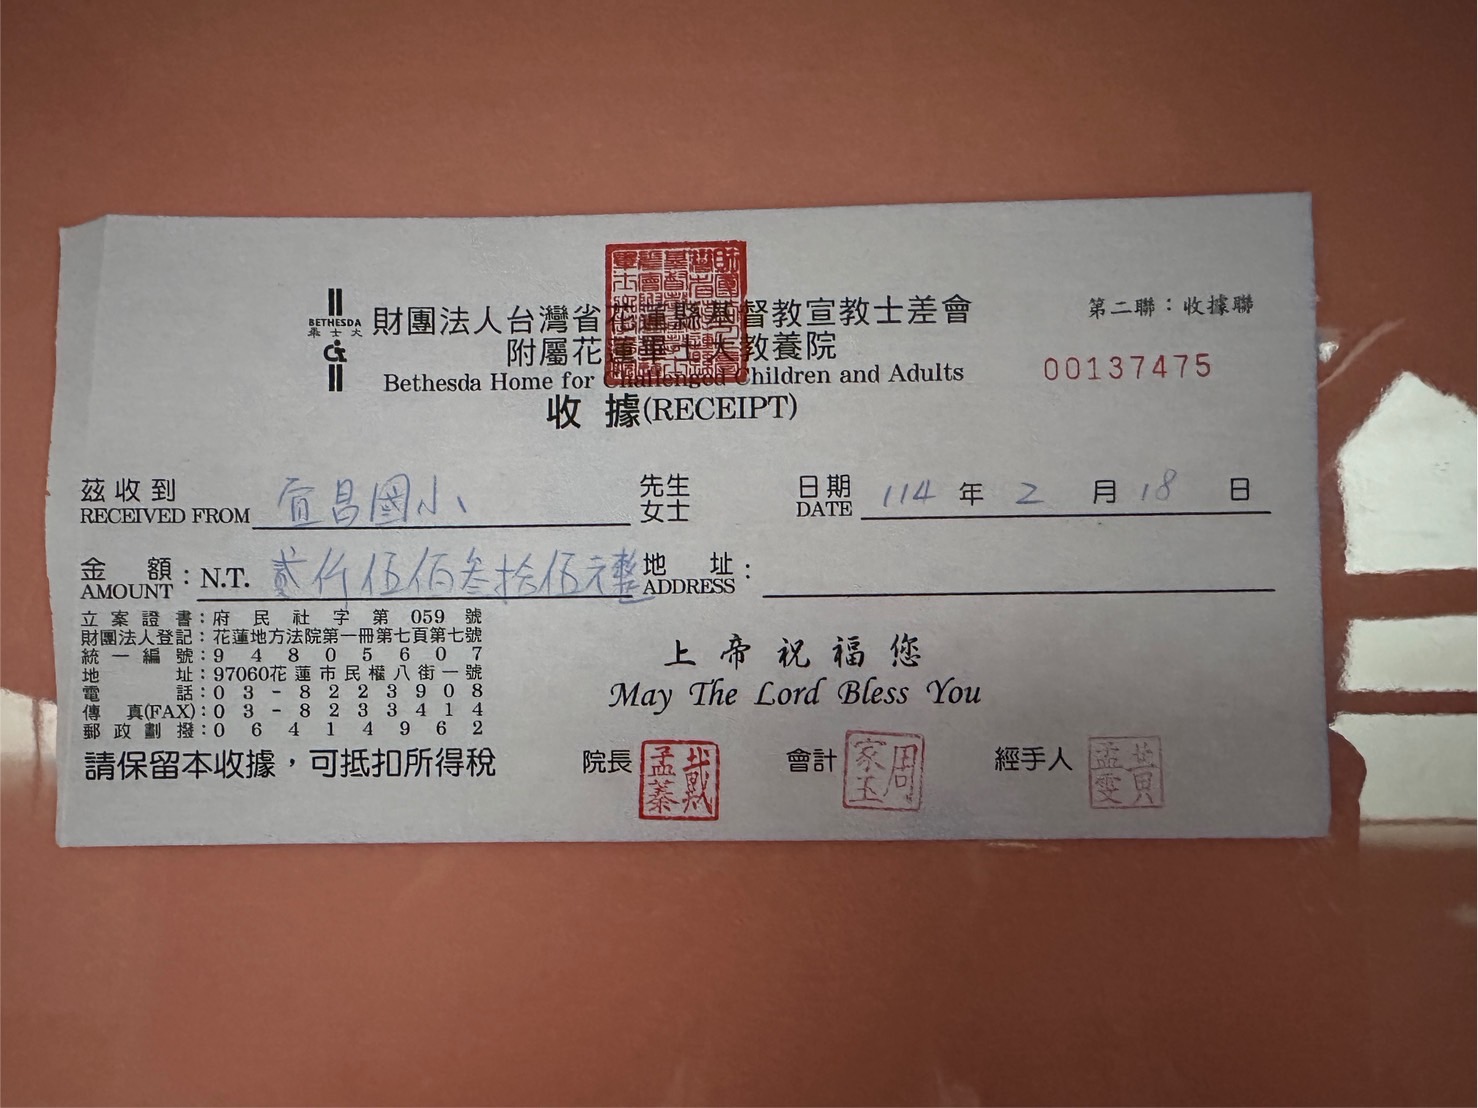 BETHESDA
畢士大
財團法人台灣省花蓮縣基督教宣教士差會
附屬花蓮畢士大教養院
Bethesda Home for Challenged Children and Adults
收據(RECEIPT)
第二聯：收據聯
00137475
茲收到
RECEIVED FROM 宜昌國小 先生
女士
日期
DATE 114 年 2 月 18 日
金額：N.T. 貳仟伍佰叁拾伍元整
AMOUNT
地址：
ADDRESS
立案證書：府民社字第059號
財團法人登記：花蓮地方法院第一冊第七頁第七號
統一編號：94805607
地址：97060花蓮市民權八街一號
電話：03-8223908
傳真(FAX)：03-8233414
郵政劃撥：06414962
請保留本收據，可抵扣所得稅
上帝祝福您
May The Lord Bless You
院長 戴孟蓁
會計 周家玉
經手人 黃孟雯